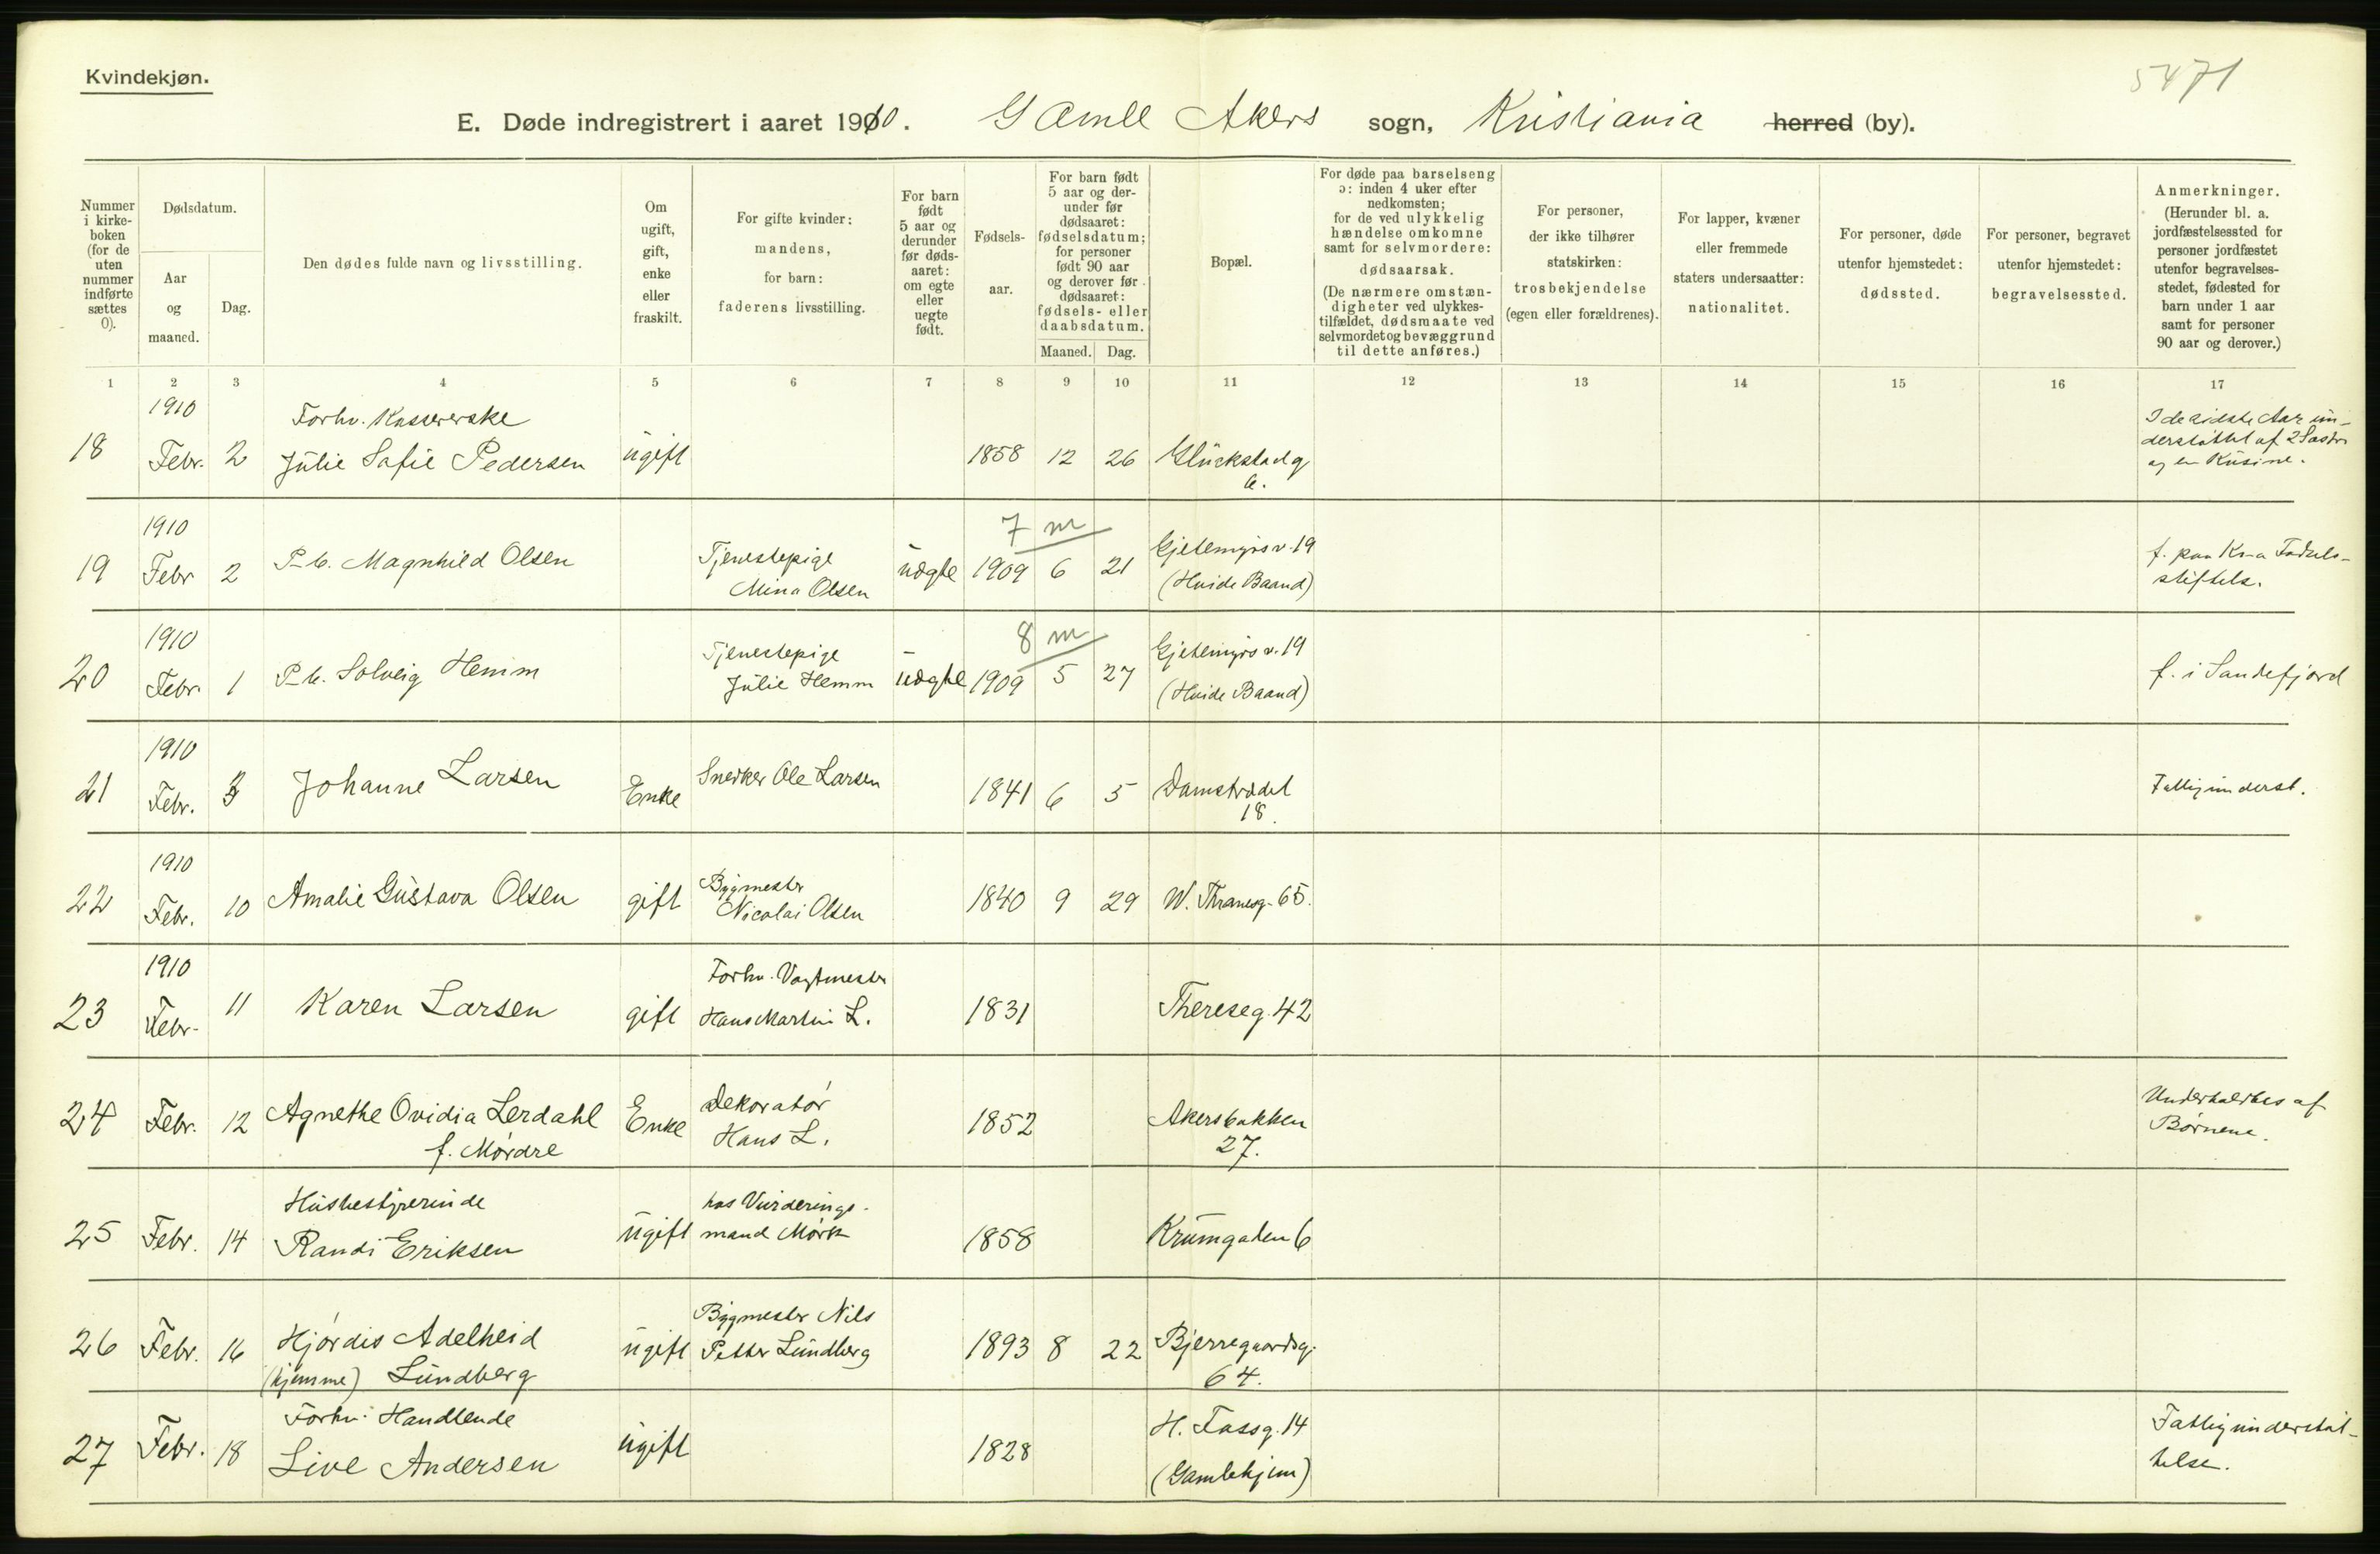 Kvindekjøn.
5471
E. Døde indregistrert i aaret 1910. Gamle Akers sogn, Kristiania herred (by).
Nummer i kirkeboken (for de uten nummer indførte sættes 0).
Dødsdatum.
Aar og maaned.
Dag.
Den dødes fulde navn og livsstilling.
Om ugift, gift, enke eller fraskilt.
For gifte kvinder: mandens, for barn: faderens livsstilling.
For barn født 5 aar og derunder før dødsaaret: om egte eller uegte født.
Fødselsaar.
For barn født 5 aar og derunder før dødsaaret: fødselsdatum; for personer født 90 aar og derover før dødsaaret: fødsels- eller daabsdatum.
Maaned. Dag.
Bopæl.
For døde paa barselseng ɔ: inden 4 uker efter nedkomsten; for de ved ulykkelig hændelse omkomne samt for selvmordere: dødsaarsak. (De nærmere omstændigheter ved ulykkestilfældet, dødsmaate ved selvmordet og bevæggrund til dette anføres.)
For personer, der ikke tilhører statskirken: trosbekjendelse (egen eller forældrenes).
For lapper, kvæner eller fremmede staters undersaatter: nationalitet.
For personer, døde utenfor hjemstedet: dødssted.
For personer, begravet utenfor hjemstedet: begravelsessted.
Anmerkninger. (Herunder bl. a. jordfæstelsessted for personer jordfæstet utenfor begravelsesstedet, fødested for barn under 1 aar samt for personer 90 aar og derover.)
1 2 3 4 5 6 7 8 9 10 11 12 13 14 15 16 17
18 1910 Febr. 2 Forhv. Kassererske Julie Sofie Pedersen ugift 1858 12 26 Glückstadg 6. I de sidste Aar understøttet af 2 Søstre og en Kusine.
19 1910 Febr 2 P.b. Magnhild Olsen Tjenestepige Mina Olsen uægte 7 m 1909 6 21 Gjetemyrsv. 19 (Hvide Baand) f. paa Kr.a Fødselsstiftelse.
20 1910 Febr. 1 P.b. Solveig Hemm Tjenestepige Julie Hemm uægte 8 m 1909 5 27 Gjetemyrsv. 19 (Hvide Baand) f. i Sandefjord
21 1910 Febr. 3 Johanne Larsen Enke Snedker Ole Larsen 1841 6 5 Damstrædet 18. Fattigunderst.
22 1910 Febr. 10 Amalie Gustava Olsen gift Bygmester Nicolai Olsen 1840 9 29 W. Thranesg. 65.
23 1910 Febr. 11 Karen Larsen gift Forhv. Vagtmester Hans Martin L. 1831 Thereseg. 42
24 Febr. 12 Agnethe Ovidia Lerdahl f. Mørdre Enke Dekoratør Hans L. 1852 Akersbakken 27. Underholdtes af Børnene.
25 Febr. 14 Husbestyrerinde Randi Eriksen ugift hos Vurderingsmand Mørk 1858 Krumgaden 6
26 Febr. 16 Hjørdis Adelheid (hjemme) Lundberg ugift Bygmester Nils Petter Lundberg 1893 8 22 Bjerregaardsg. 64.
27 Febr. 18 Forhv. Handlende Live Andersen ugift 1828 H. Fossg. 14 (Gamlehjem) Fattigunderstøttelse.